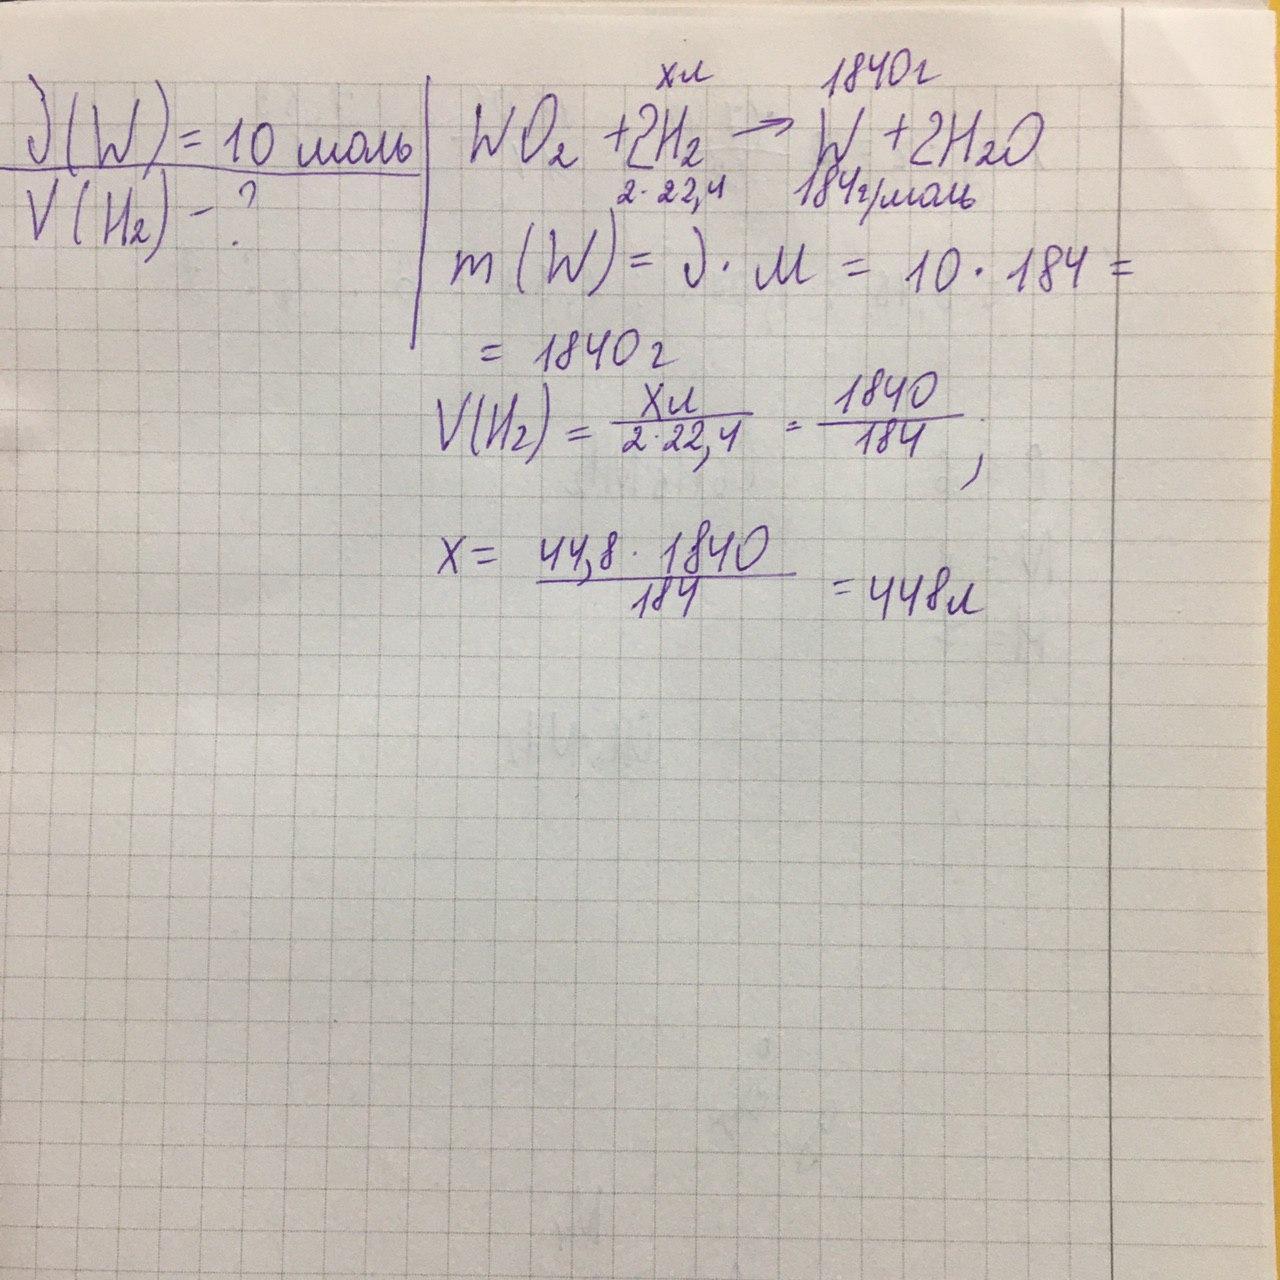 ν(W) = 10 моль
V(H₂) - ?
хл 1840г
WO₂ + 2H₂ → W + 2H₂O
2·22,4 184г/моль
m(W) = ν · M = 10 · 184 =
= 1840г
V(H₂) = Хл / 2·22,4 = 1840 / 184 ;
X = 44,8 · 1840 / 184 = 448л